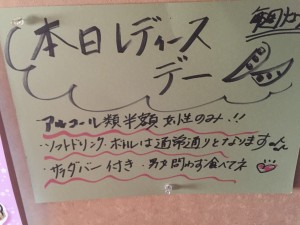 本日レディース
デー
アルコール類半額 女性のみ!!
・ソフトドリンク・ボトルは通常通りとなります
・サラダバー付き・男女問わず食べてネ